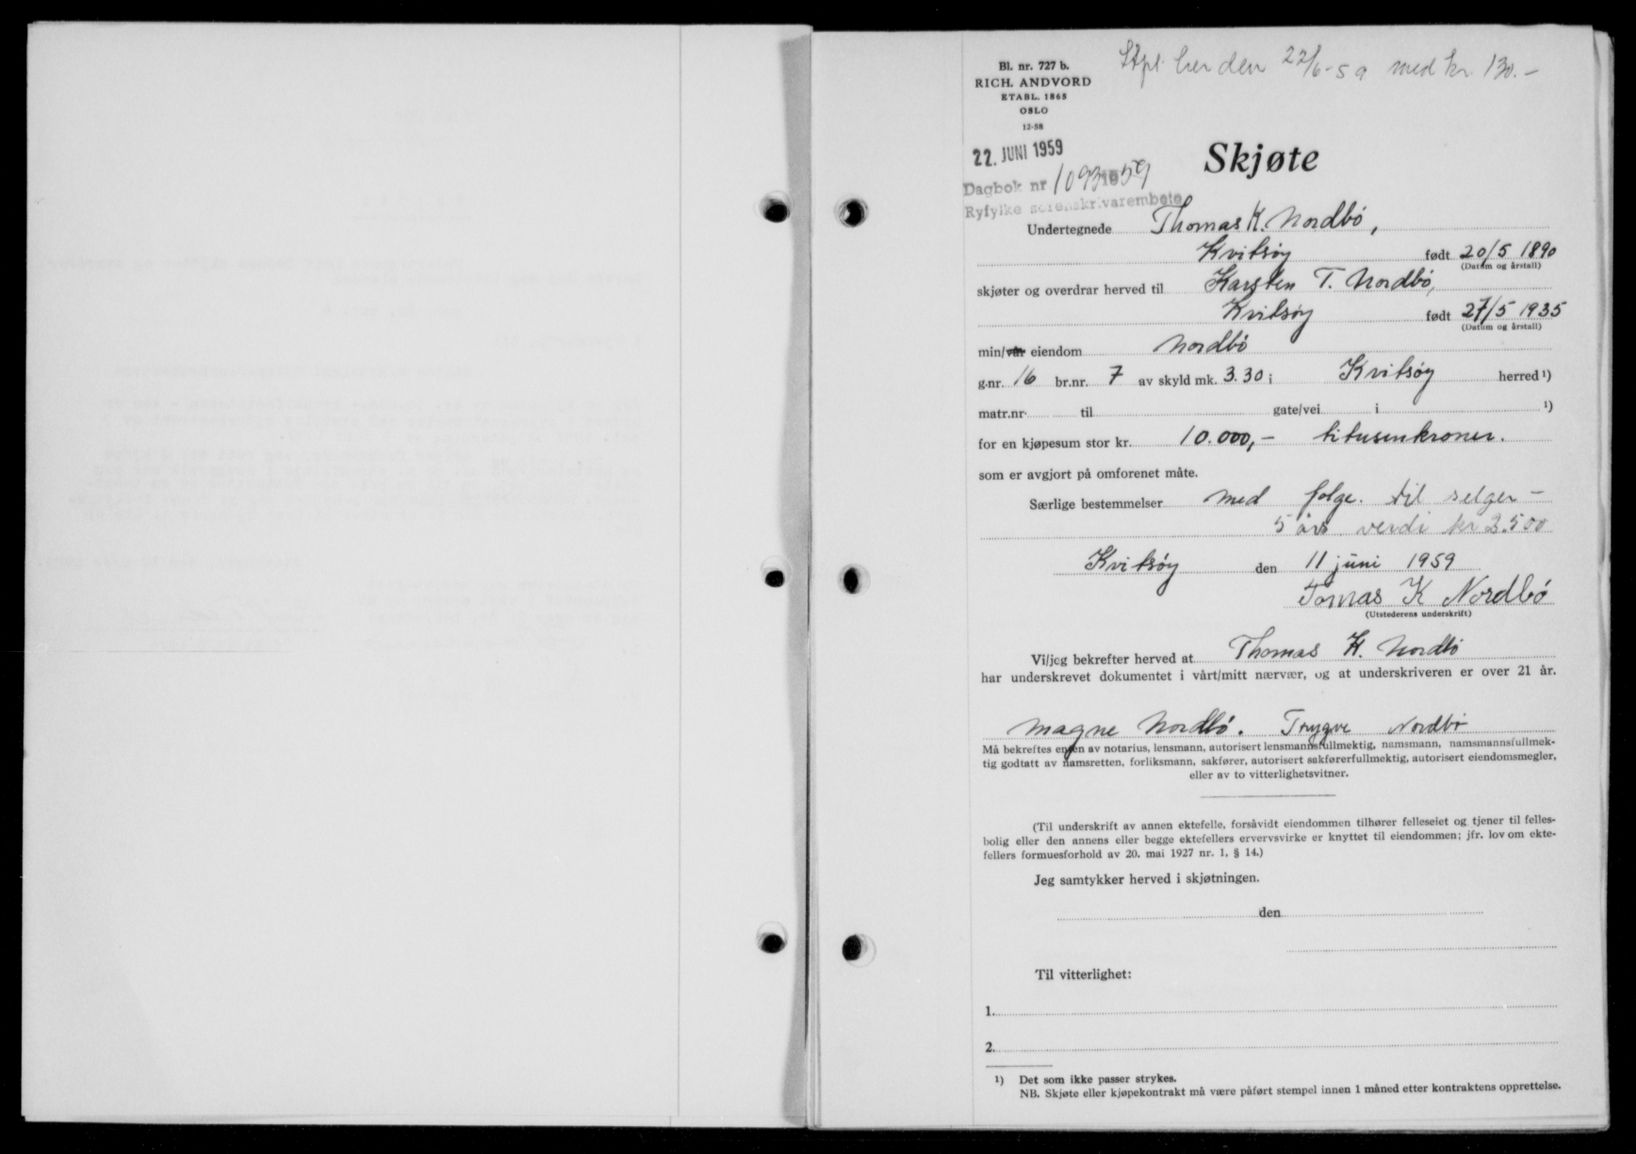 Stpl. her den 22/6-59 med kr 130.-
Bl. nr. 727 b.
RICH. ANDVORD
ETABL. 1865
OSLO
12-58
22. JUNI 1959
Skjøte
Dagbok nr 1093 1959
Ryfylke sorenskrivarembete
Undertegnede Thomas K. Nordbö,
Kvitsöy født 20/5 1890
(Datum og årstall)
skjøter og overdrar herved til Karsten T. Nordbö,
Kvitsöy født 27/5 1935
(Datum og årstall)
min/vår eiendom Nordbö
g.nr. 16 br.nr. 7 av skyld mk. 3.30 i Kvitsöy herred ¹)
matr.nr. til gate/vei i ¹)
for en kjøpesum stor kr. 10.000,- titusenkroner.
som er avgjort på omforenet måte.
Særlige bestemmelser med følge. til selger -
5 års verdi kr 2.500
Kvitsöy den 11 juni 1959
Tomas K Nordbö
(Utstederens underskrift)
Vi/jeg bekrefter herved at Thomas K. Nordbö
har underskrevet dokumentet i vårt/mitt nærvær, og at underskriveren er over 21 år.
Magne Nordbö. Trygve Nordbö
Må bekreftes enten av notarius, lensmann, autorisert lensmannsfullmektig, namsmann, namsmannsfullmek-
tig godtatt av namsretten, forliksmann, sakfører, autorisert sakførerfullmektig, autorisert eiendomsmegler,
eller av to vitterlighetsvitner.
(Til underskrift av annen ektefelle, forsåvidt eiendommen tilhører felleseiet og tjener til felles-
bolig eller den annens eller begge ektefellers ervervsvirke er knyttet til eiendommen; jfr. lov om ekte-
fellers formuesforhold av 20. mai 1927 nr. 1, § 14.)
Jeg samtykker herved i skjøtningen.
den
Til vitterlighet:
1.
2.
¹) Det som ikke passer strykes.
NB. Skjøte eller kjøpekontrakt må være påført stempel innen 1 måned etter kontraktens opprettelse.